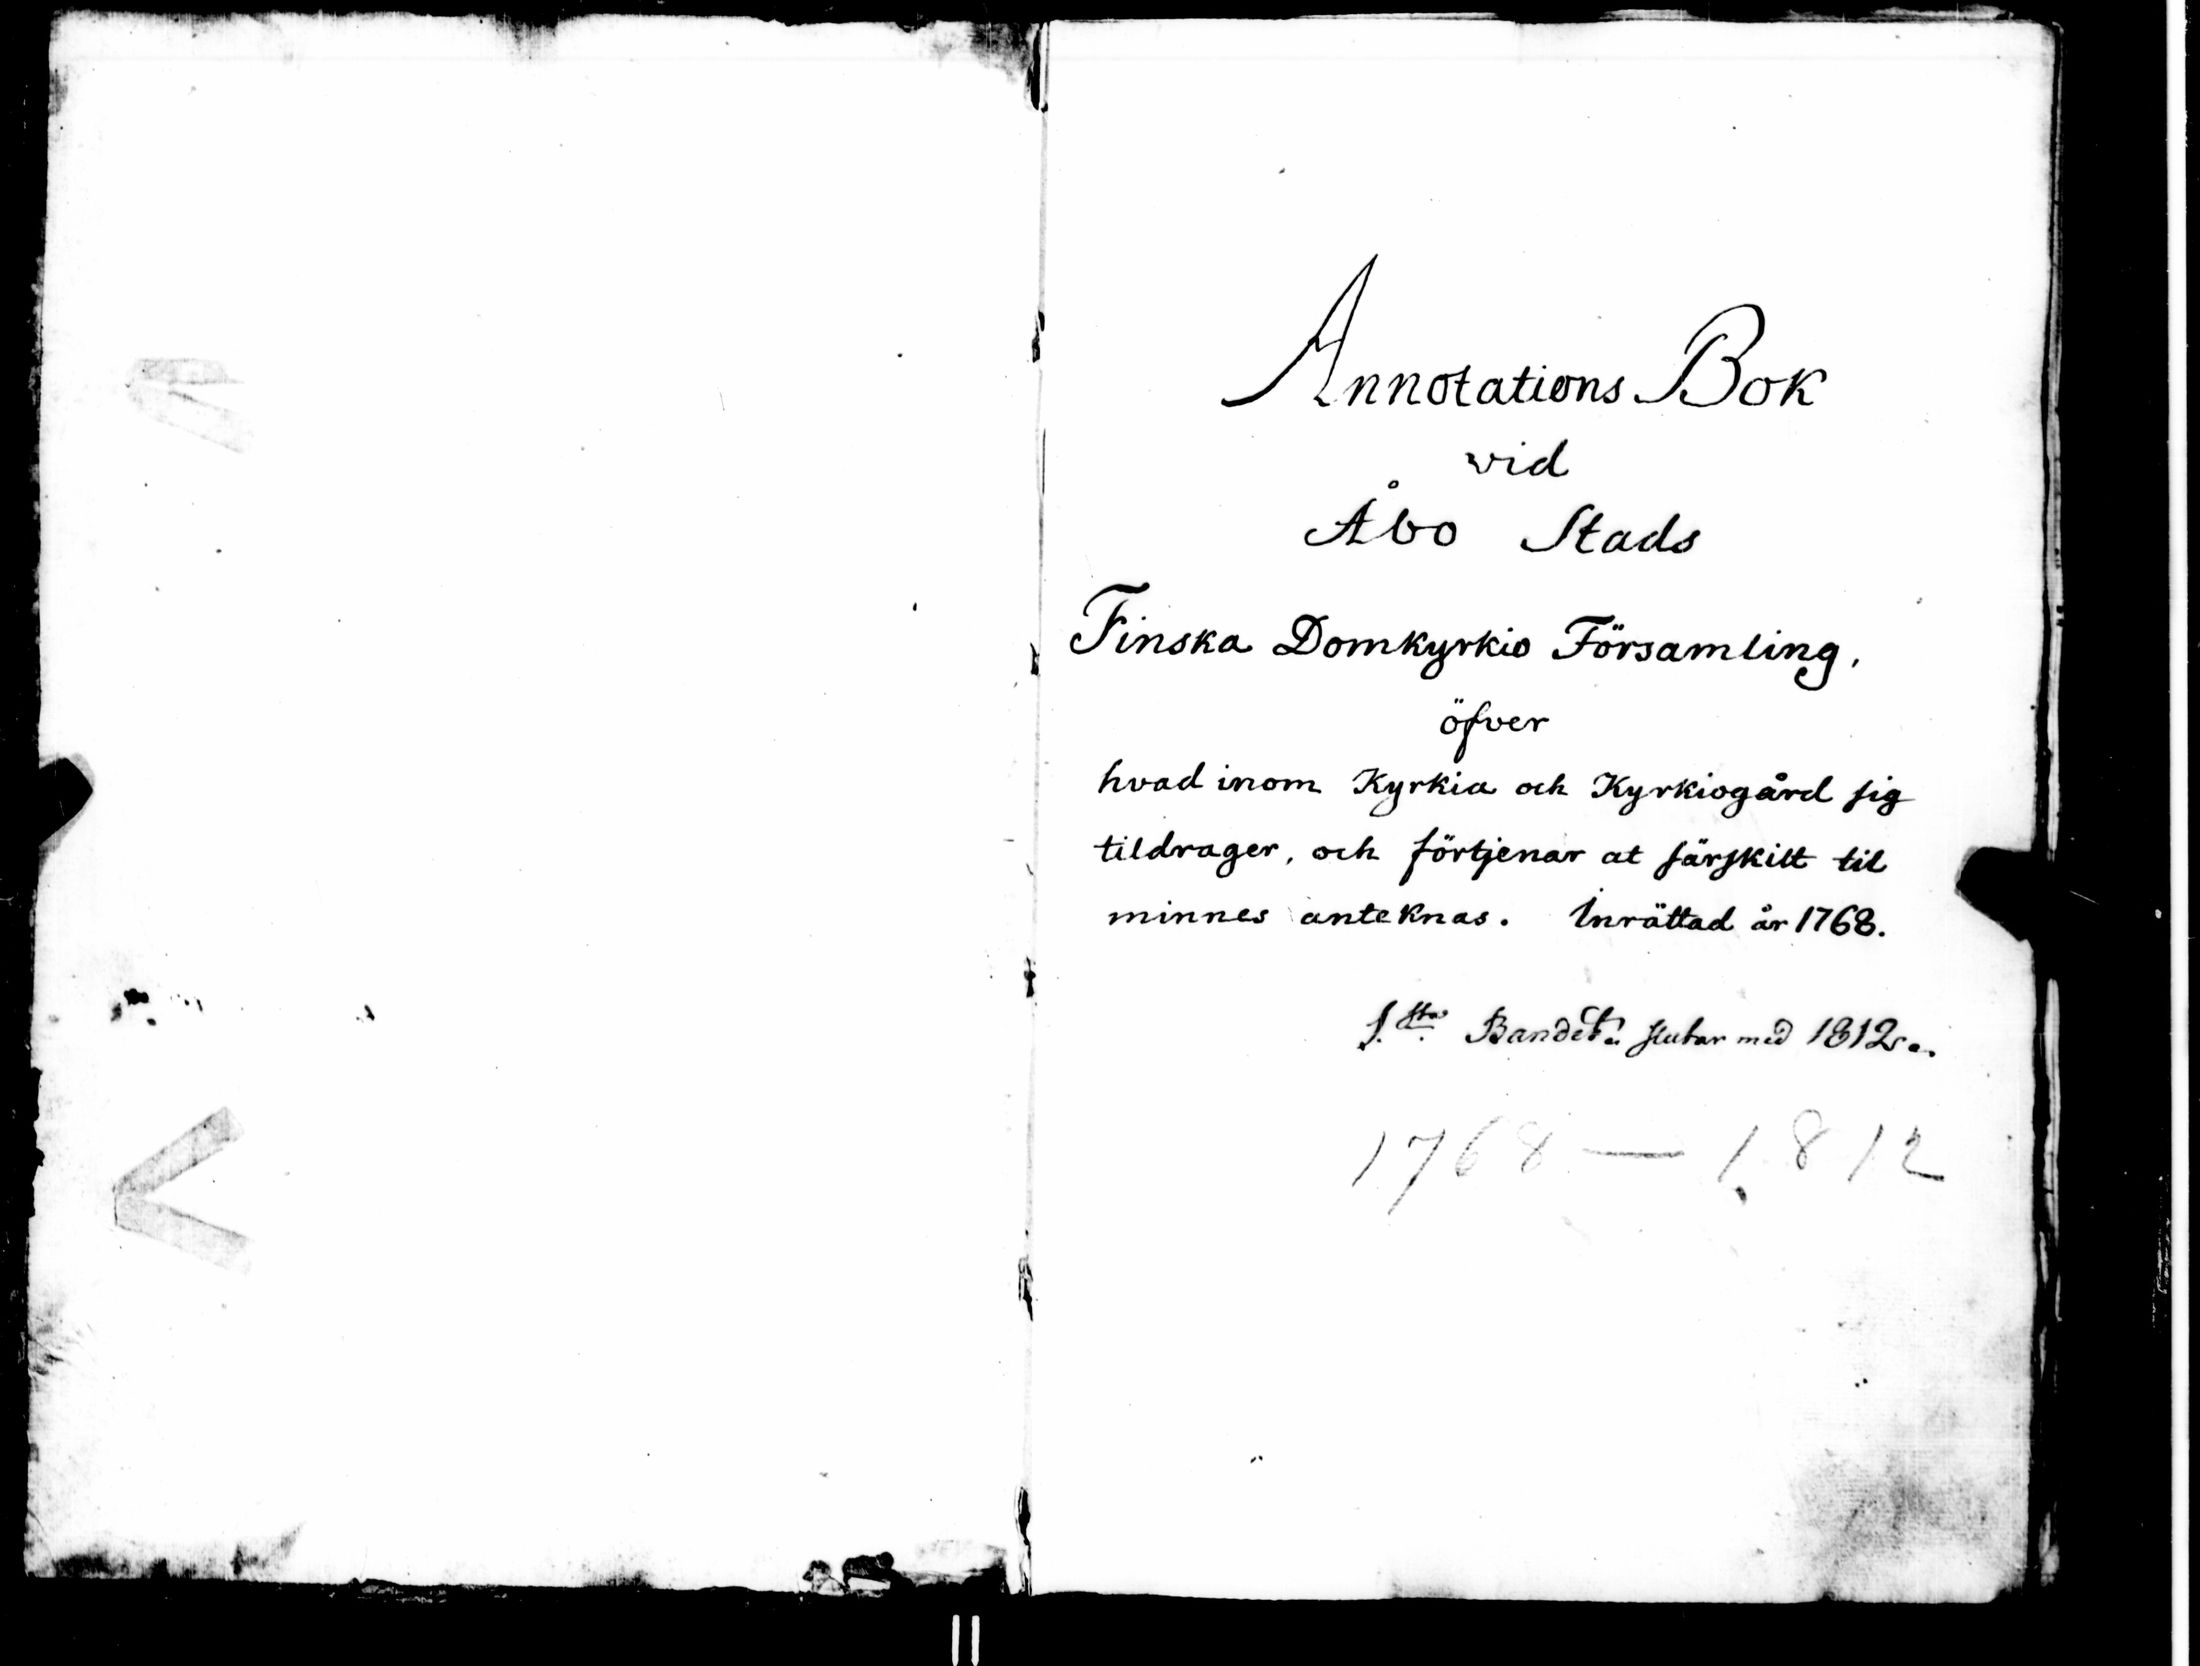 Annotations Bok
vid
Åbo Stads
Finska Domkyrkio Församling,
öfver
hvad inom Kyrkia och Kyrkiogård sig
tildrager, och förtjenar at särskilt til
minnes anteknas. Inrättad år 1768.
1.sta Bandet slutar med 1812.
1768 — 1812